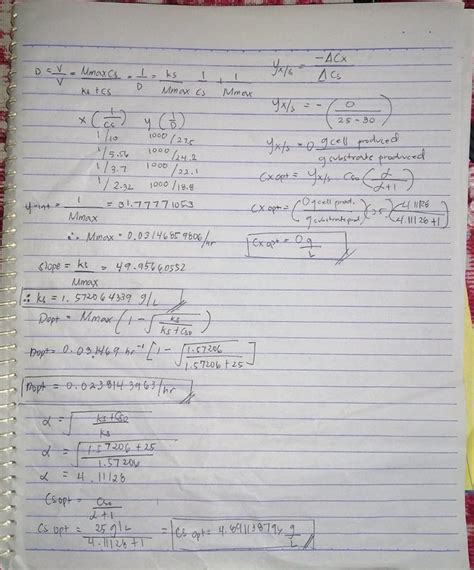 D = V/V = Mmax Cs / ks + Cs = 1/D = ks/Mmax 1/Cs + 1/Mmax
x (1/Cs) y (1/D)
1/10 1000/23.5
1/5.56 1000/24.2
1/3.7 1000/22.1
1/2.32 1000/18.8
y-int = 1/Mmax = 31.77771053
∴ Mmax = 0.03146859806/hr
slope = ks/Mmax = 49.95660552
∴ ks = 1.572064339 g/L
Dopt = Mmax (1 - √(ks/ks+Cso))
Dopt = 0.031469 hr⁻¹ [1 - √(1.57206/1.57206 + 25)]
Dopt = 0.0238143963/hr
α = √(ks+Cso/ks)
α = √(1.57206 + 25/1.57206)
α = 4.11128
Cs opt = Cso/α+1
Cs opt = 25 g/L / 4.11128 + 1 = Cs opt = 4.891138794 g/L
Yx/s = -ΔCx/ΔCs
Yx/s = - (0/25-30)
Yx/s = 0 g cell produced/g substrate produced
Cx opt = Yx/s Cso (α/α+1)
Cx opt = (0 g cell prod./g substrate prod) (25) (4.11128/4.11128+1)
Cx opt = 0 g/L